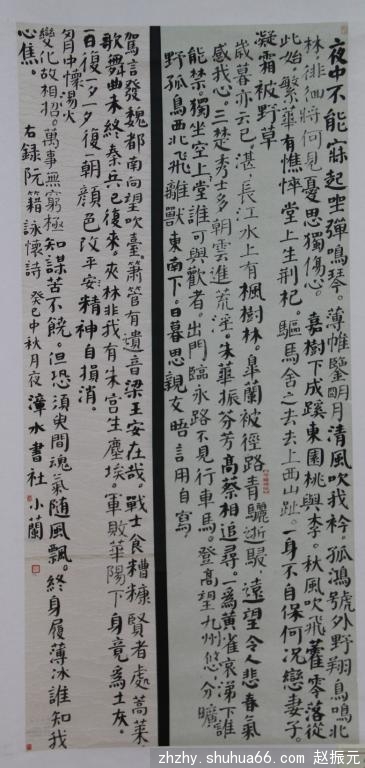 夜中不能寐起坐彈鳴琴。薄帷鑒明月清風吹我衿。孤鴻號外野翔鳥鳴北
林。徘徊將何見憂思獨傷心。嘉樹下成蹊東園桃與李。秋風吹飛藿零落從
此始。繁華有憔悴堂上生荊杞。驅馬舍之去去上西山趾。一身不自保何況戀妻子。
凝霜被野草
歲暮亦云已。湛湛長江水上有楓樹林。皋蘭被徑路青驪逝駸駸。遠望令人悲春氣
感我心。三楚秀士多朝雲進荒淫。朱華振芬芳高蔡相追尋。一為黃雀哀涕下誰
能禁。獨坐空上堂誰可與歡者。出門臨永路不見行車馬。登高望九州悠悠分曠
野孤鳥西北飛離獸東南下。日暮思親友晤言用自寫
駕言發魏都南向望吹臺。簫管有遺音梁王安在哉。戰士食糟糠賢者處蒿萊。
歌舞曲未終秦兵已復來。夾林非我有朱宮生塵埃。軍敗華陽下身竟為土灰。
一日復一夕一夕復一朝顏色改平安精神自損消。
胸中懷湯火
變化故相招。萬事無窮極知謀苦不饒。但恐須臾間魂氣隨風飄。終身履薄冰誰知我
心焦。
右錄阮籍詠懷詩 癸巳中秋月夜 漳水書社 小蘭
zhzhy.shuhua66.com 赵振元